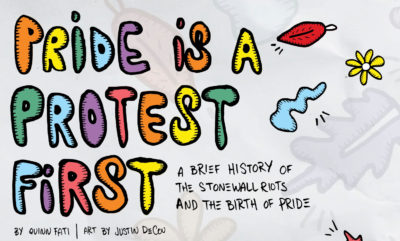 PRiDE iS A
PROTEST
FiRST
A BRIEF HISTORY OF
THE STONEWALL RIOTS
AND THE BIRTH OF PRIDE
BY QUINN FATI | ART BY JUSTIN DECOU